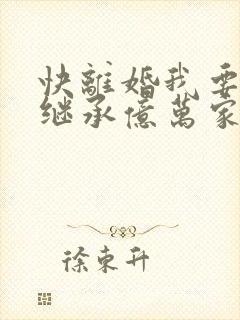 快離婚我要
继承億萬家
徐東升